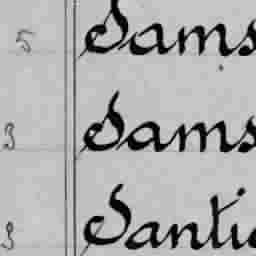 5 Sams
3 Sams
3 Santi